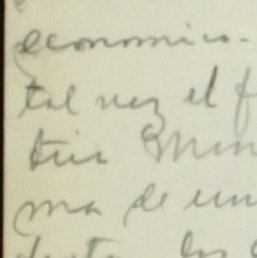 economico.
tal vez el f
tria Min
ma de un
los